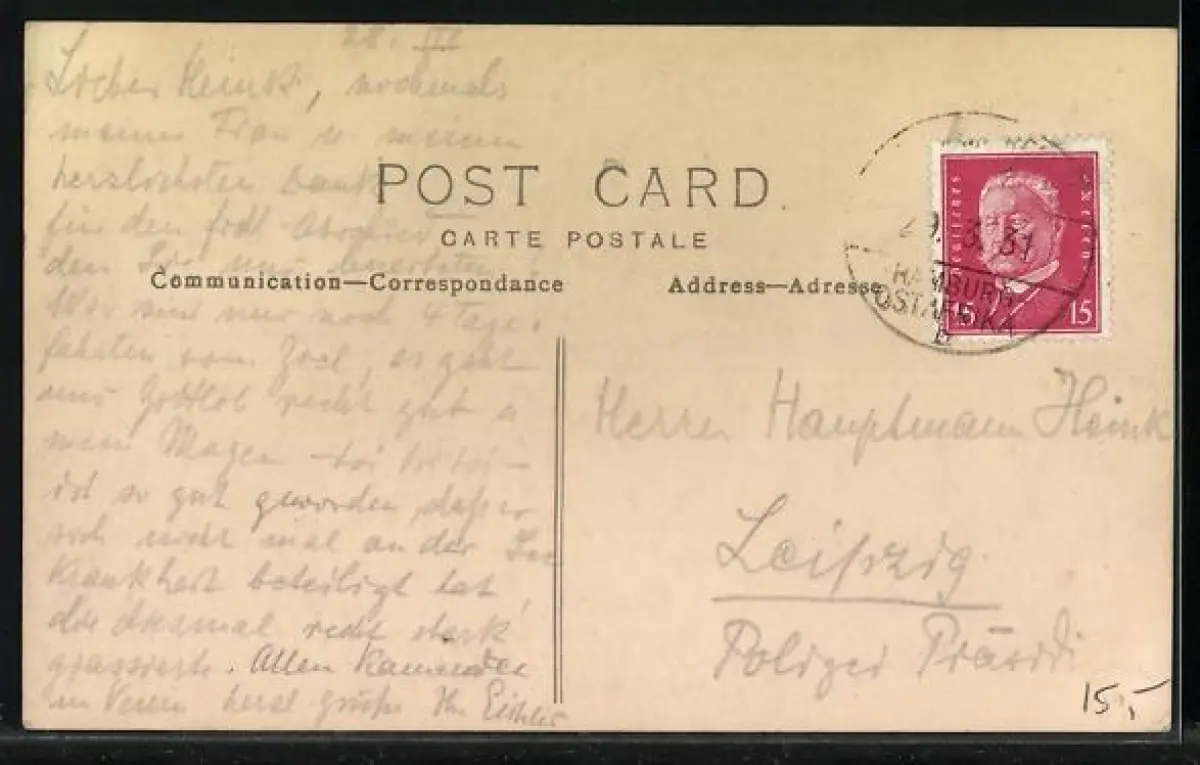 28. III
Lieber Heink, nochmals
meinen Frau u. meinen
herzlichsten Dank
für den frdl. Abschied
den Sie uns
Wir sind nur noch 4 Tage-
fahrten vom Ziel, es geht
uns Gottlob recht gut u
mein Magen
ist so gut geworden, daß er
sich nicht mal an der See
Krankheit beteiligt hat,
die diesmal recht stark
grassierte. Allen Kameraden
im Verein herzl grüße Ihr Eichler
POST CARD.
CARTE POSTALE
Communication—Correspondance
Address—Adresse
Deutsches Reich
15 15
29.3.31
HAMBURG
OSTAFRIKA
Herrn Hauptmann Heink
Leipzig
Polizei Präsidi
15,-